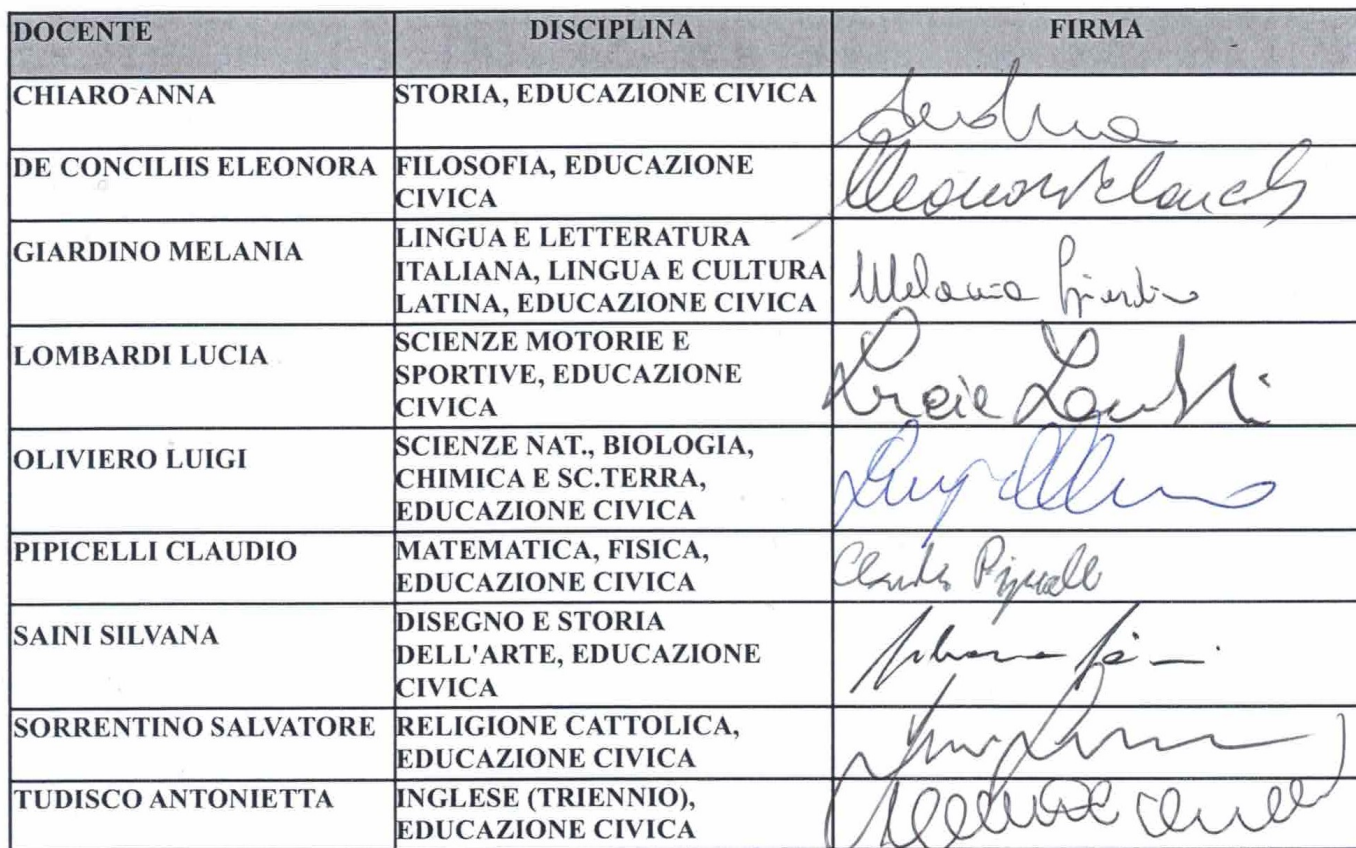 DOCENTE DISCIPLINA FIRMA
CHIARO ANNA STORIA, EDUCAZIONE CIVICA
DE CONCILIIS ELEONORA FILOSOFIA, EDUCAZIONE
CIVICA
GIARDINO MELANIA LINGUA E LETTERATURA
ITALIANA, LINGUA E CULTURA
LATINA, EDUCAZIONE CIVICA
Melania Giardino
LOMBARDI LUCIA SCIENZE MOTORIE E
SPORTIVE, EDUCAZIONE
CIVICA
Lucia Lombardi
OLIVIERO LUIGI SCIENZE NAT., BIOLOGIA,
CHIMICA E SC.TERRA,
EDUCAZIONE CIVICA
PIPICELLI CLAUDIO MATEMATICA, FISICA,
EDUCAZIONE CIVICA
Claudio Pipicelli
SAINI SILVANA DISEGNO E STORIA
DELL'ARTE, EDUCAZIONE
CIVICA
SORRENTINO SALVATORE RELIGIONE CATTOLICA,
EDUCAZIONE CIVICA
TUDISCO ANTONIETTA INGLESE (TRIENNIO),
EDUCAZIONE CIVICA